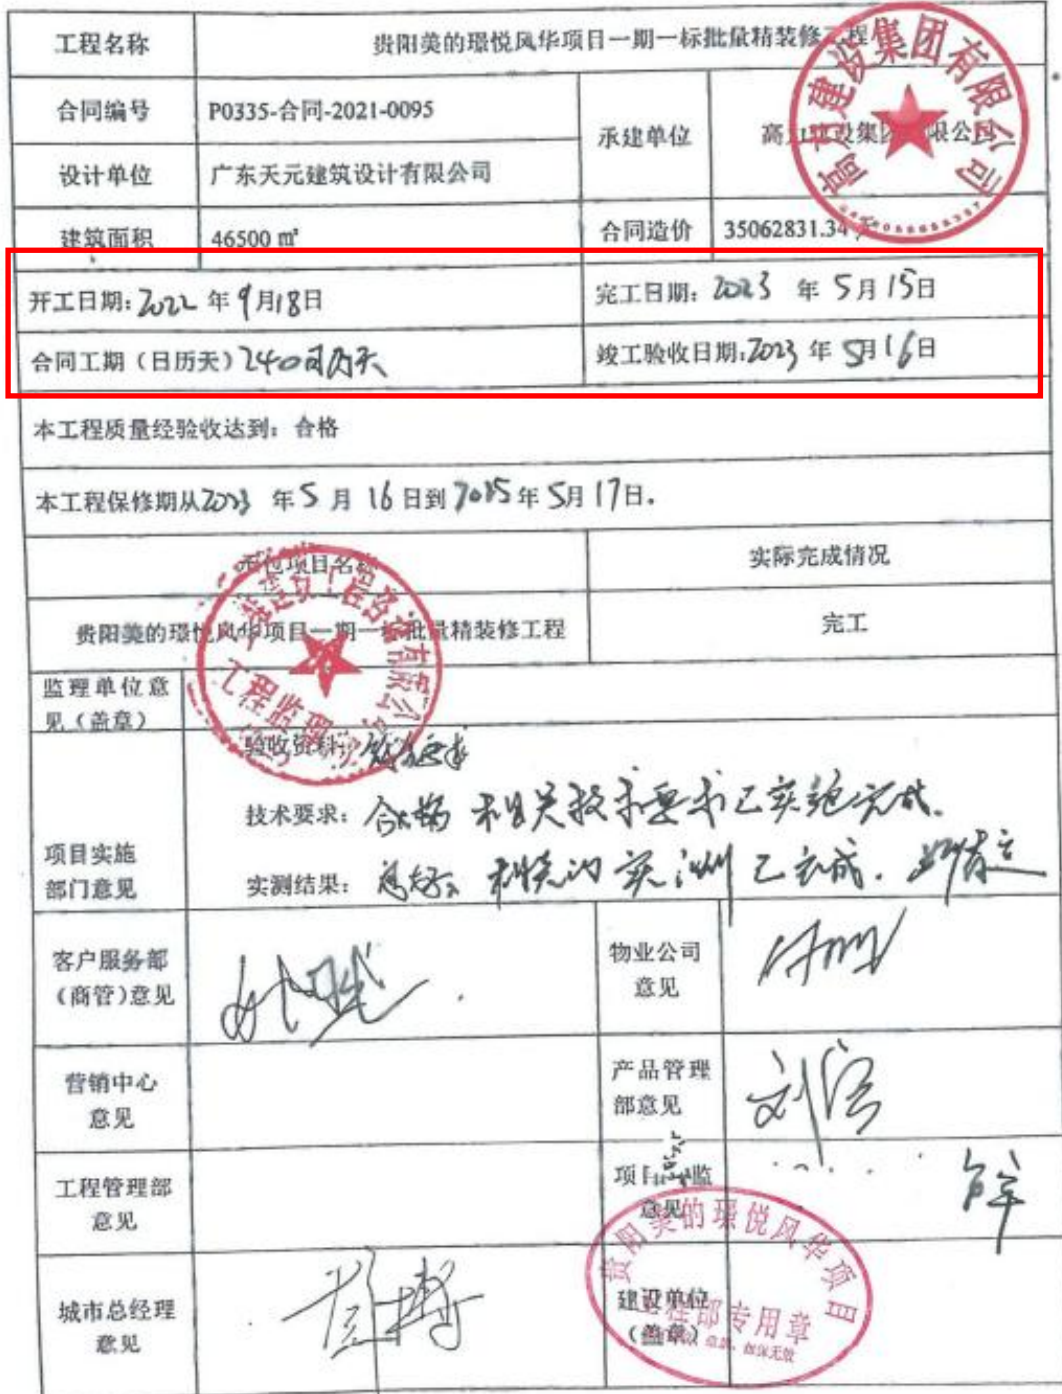 工程名称 贵阳美的璟悦风华项目一期一标批量精装修工程
合同编号 P0335-合同-2021-0095
承建单位 高 建设集团有限公司
设计单位 广东天元建筑设计有限公司
建筑面积 46500 ㎡ 合同造价 35062831.34
开工日期:2022 年 9月18日 完工日期: 2023 年 5月15日
合同工期（日历天）240日历天 竣工验收日期:2023 年 5月16日
本工程质量经验收达到：合格
本工程保修期从2023 年 5 月 16 日到 2025 年 5月17日.
项目名称 实际完成情况
贵阳美的璟悦风华项目一期一标批量精装修工程 完工
监理单位意
见（盖章）
工程监理
验收资料:
技术要求: 合格 相关技术要求已实施完成.
项目实施
部门意见
实测结果: 实测已完成.
客户服务部
（商管）意见
物业公司
意见
营销中心
意见
产品管理
部意见
刘
工程管理部
意见
项目总监
意见
城市总经理
意见
彭博
建设单位
（盖章）
建设集团有限公司
贵阳美的璟悦风华项目
工程部专用章